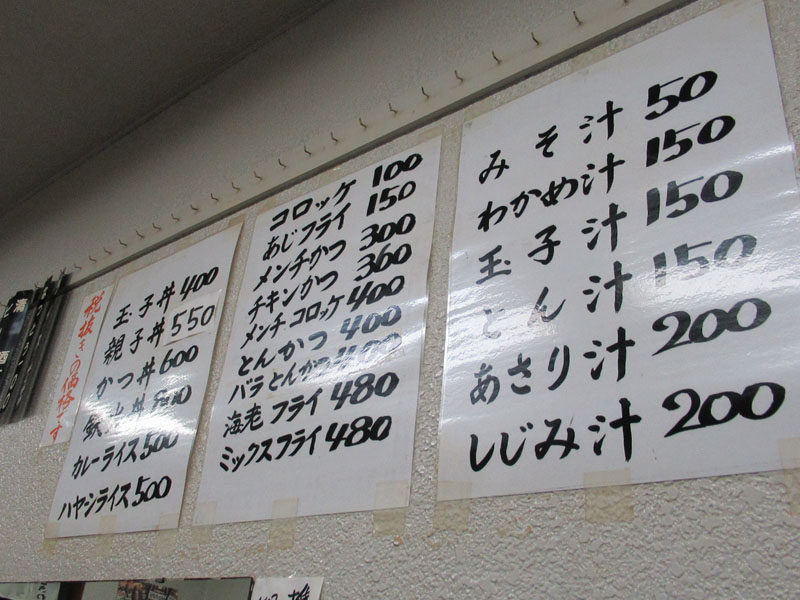 税抜きの価格です
玉子丼 400
親子丼 550
かつ丼 600
鉄火丼
カレーライス 500
ハヤシライス 500
コロッケ 100
あじフライ 150
メンチかつ 300
チキンかつ 360
メンチコロッケ 400
とんかつ 400
バラとんかつ 400
海老フライ 480
ミックスフライ 480
みそ汁 50
わかめ汁 150
玉子汁 150
とん汁 150
あさり汁 200
しじみ汁 200